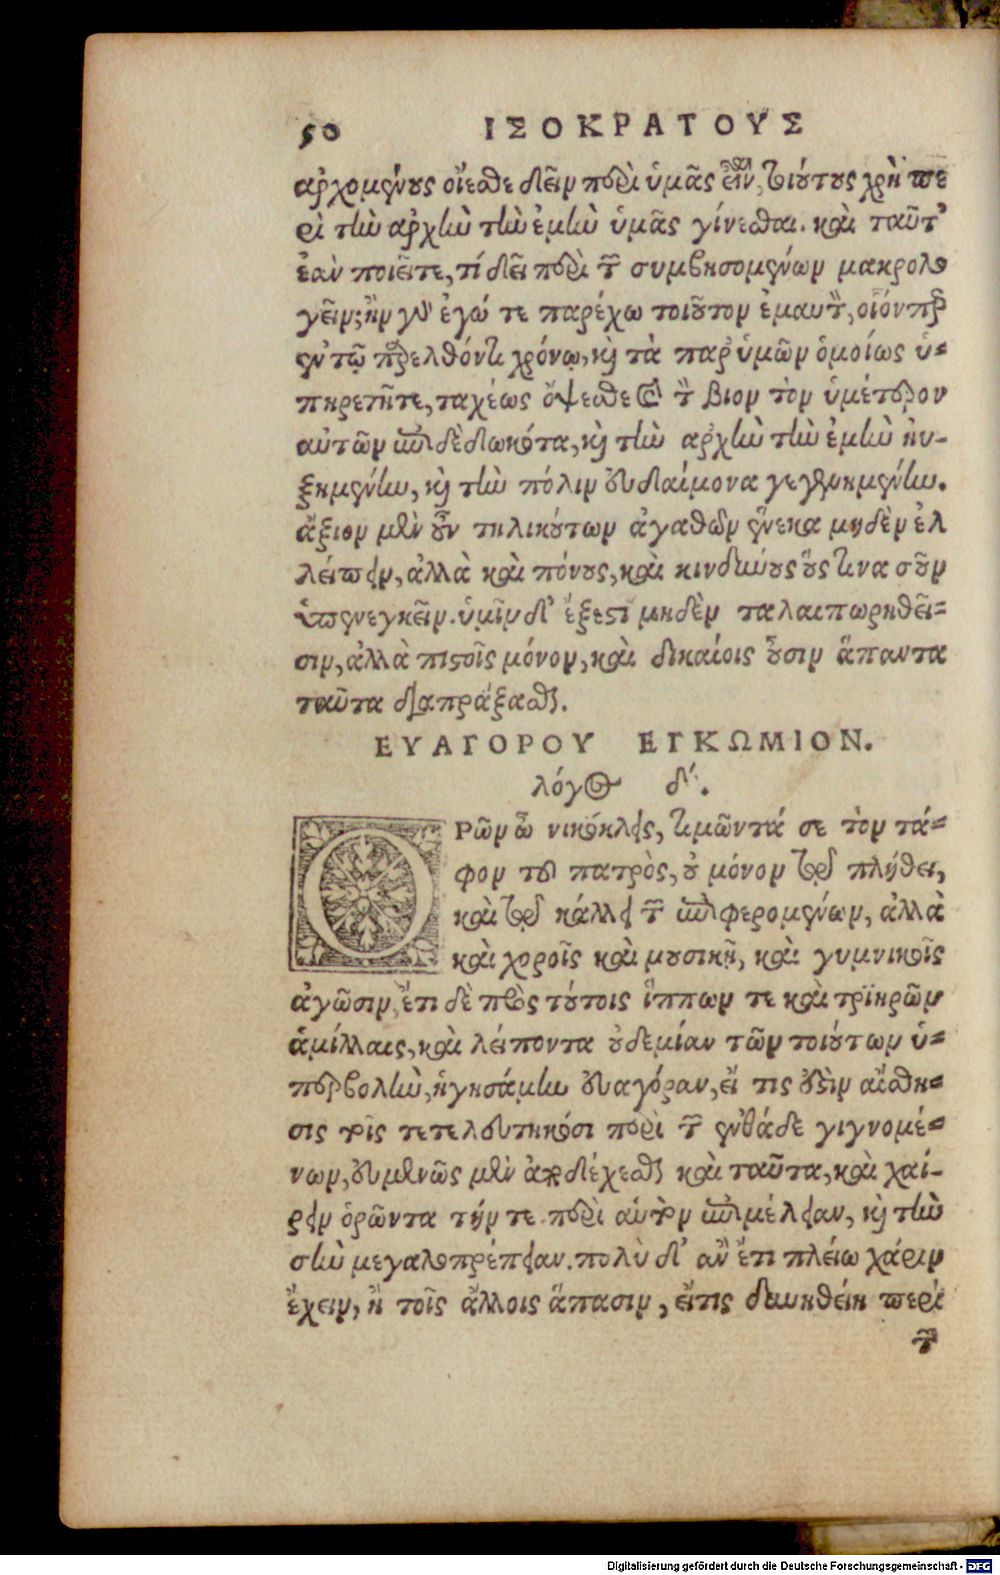 50 ΙΣΟΚΡΑΤΟΥΣ
αρχομένους οἴεσθε δεῖν περὶ ὑμᾶς εἶναι, τοιούτους χρὴ πε
ρὶ τὴν αρχὴν τὴν ἐμὴν ὑμᾶς γίνεσθαι. καὶ ταῦτ'
ἐὰν ποιεῖτε, τί δεῖ περὶ τῶν συμβησομένων μακρολο
γεῖν; ἢν γὰρ ἐγώ τε παρέχω τοιοῦτον ἐμαυτὸν, οἷόνπερ
ἐν τῷ παρελθόντι χρόνῳ, καὶ τὰ παρ' ὑμῶν ὁμοίως ὑ-
πηρετῆτε, ταχέως ὄψεσθε καὶ τὸν βιον τὸν ὑμέτερον
αὐτῶν ἐπιδεδωκότα, καὶ τὴν αρχὴν τὴν ἐμὴν ηυ-
ξημένην, καὶ τὴν πόλιν εὐδαίμονα γεγενημένην.
ἄξιον μὲν οὖν τηλικούτων ἀγαθῶν ἕνεκα μηδὲν ἐλ
λείπειν, ἀλλὰ καὶ πόνους, καὶ κινδύνους οὕς τινας οὖν
ὑπενεγκεῖν. ὑμῖν δ' ἔξεστι μηδὲν ταλαιπωρηθεῖ-
σιν, ἀλλὰ πιστοῖς μόνον, καὶ δικαίοις οὖσιν ἅπαντα
ταῦτα διαπράξασθαι.
ΕΥΑΓΟΡΟΥ ΕΓΚΩΜΙΟΝ.
λόγος δ'.
ΟΡῶν ὦ νικόκλεις, τιμῶντά σε τὸν τά-
φον τοῦ πατρὸς, οὐ μόνον τῷ πλήθει,
καὶ τῷ κάλλει τῶν ἐπιφερομένων, ἀλλὰ
καὶ χοροῖς καὶ μουσικῇ, καὶ γυμνικοῖς
ἀγῶσιν, ἔτι δὲ πρὸς τούτοις ἵππων τε καὶ τριηρῶν
ἁμίλλαις, καὶ λείποντα οὐδεμίαν τῶν τοιούτων ὑ-
περβολὴν, ἡγησάμην εὐαγόραν, εἴ τις ἐστὶν αἴσθη-
σις τοῖς τετελευτηκόσι περὶ τῶν ἐνθάδε γιγνομέ-
νων, εὐμενῶς μὲν ἀποδέχεσθαι καὶ ταῦτα, καὶ χαί-
ρειν ὁρῶντα τήν τε περὶ αὑτὸν ἐπιμέλειαν, καὶ τὴν
σὴν μεγαλοπρέπειαν. πολὺ δ' ἂν ἔτι πλείω χάριν
ἔχειν, ἢ τοῖς ἄλλοις ἅπασιν, εἴτις δυνηθείη περὶ
τῶν
Digitalisierung gefördert durch die Deutsche Forschungsgemeinschaft - DFG